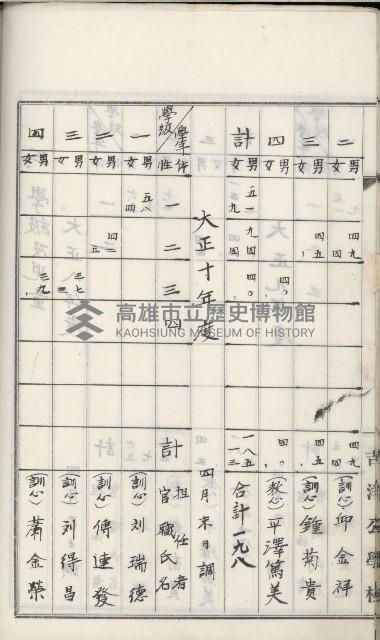 二 男 四九 四九 (訓心) 邱金祥
女 四 四
三 男 四五 四五 (訓心) 鍾菊貴
女
四 男 四〇 四〇 (教心) 平澤篤美
女
計 男 五一 九四 四〇 一八五
女 九 四 一三
合計一九八
大正十年度
四月末日調
學級 學年 性 一 二 三 四 計 担任者官職氏名
一 男 五八 (訓心) 刘瑞德
女 四
二 男 四二 (訓心) 傅連發
女 五
三 男 三七 (訓心) 刘得昌
女 三
四 男 三九 (訓心) 蕭金榮
女
高雄市立歷史博物館
KAOHSIUNG MUSEUM OF HISTORY